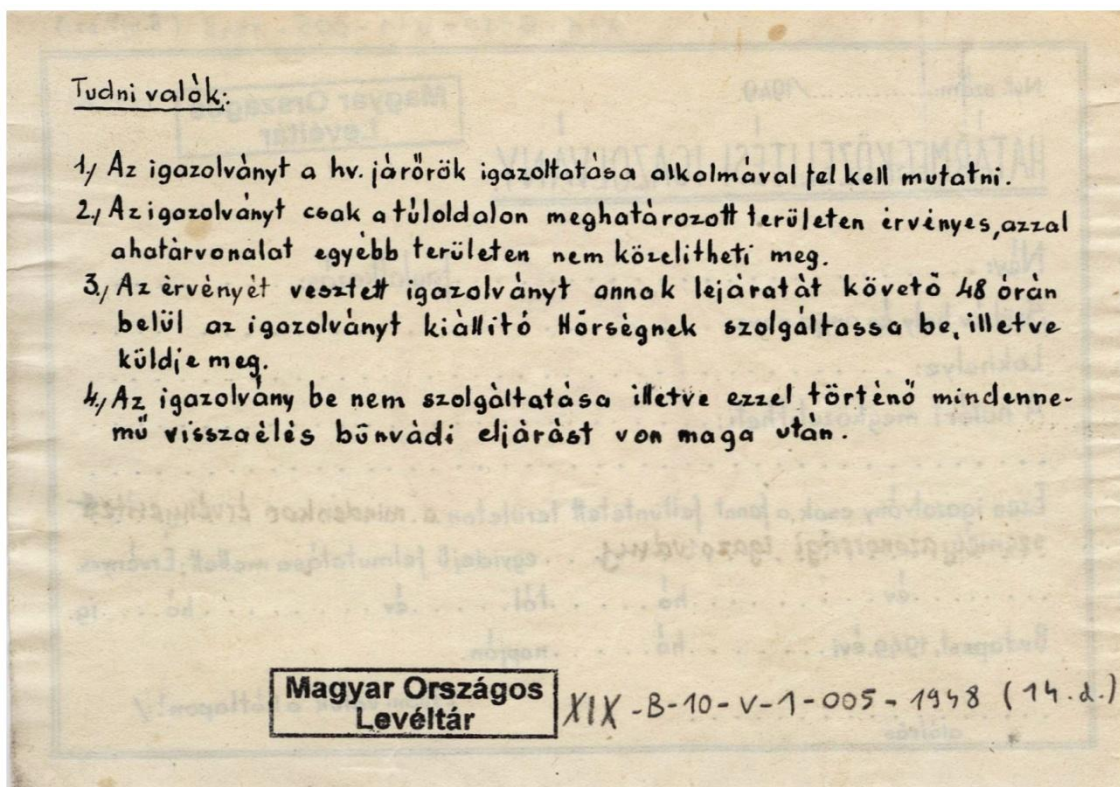 Tudni valók:
1./ Az igazolványt a hv. járőrök igazoltatása alkalmával fel kell mutatni.
2./ Az igazolványt csak a túloldalon meghatározott területen érvényes, azzal
a határvonalat egyébb területen nem közelitheti meg.
3./ Az érvényét vesztett igazolványt annak lejáratát követő 48 órán
belül az igazolványt kiállító Hőrségnek szolgáltassa be, illetve
küldje meg.
4./ Az igazolvány be nem szolgáltatása illetve ezzel történő mindenne-
mű visszaélés bűnvádi eljárást von maga után.
Magyar Országos
Levéltár
XIX-B-10-V-1-005-1948 (14.d.)